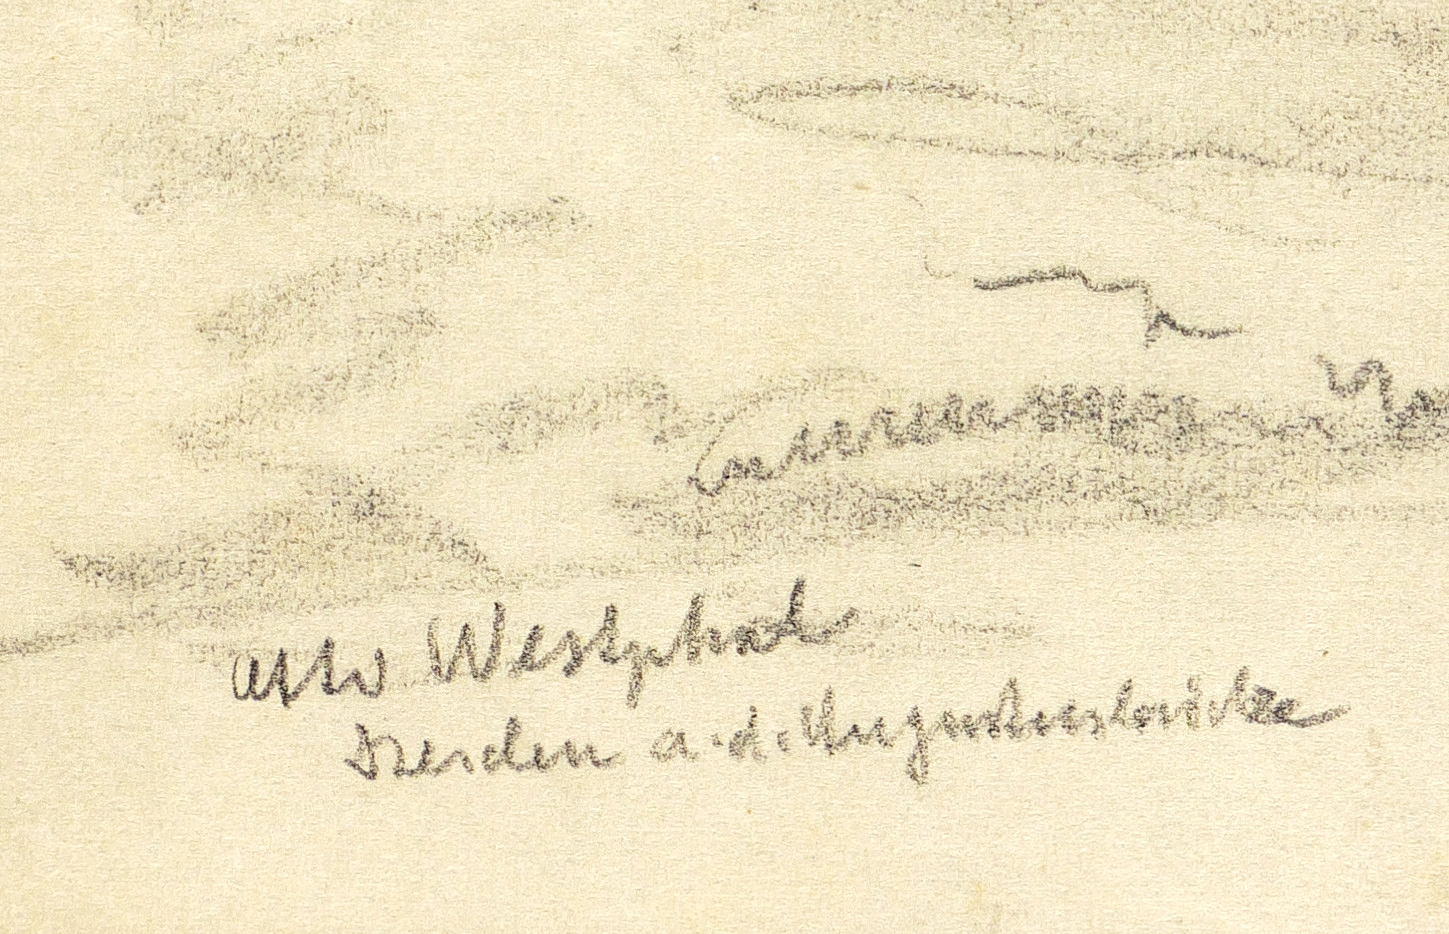 Otto Westphal
Dresden a. d. Augustusbrücke